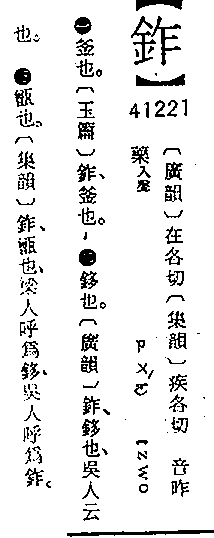 【鈼】
41221
〔廣韻〕在各切〔集韻〕疾各切 音昨
藥入聲 ㄗㄨㄛˊ tzwo
㊀釜也。〔玉篇〕鈼、釜也。㊁鉹也。〔廣韻〕鈼、鉹也、吳人云
也。㊂甑也。〔集韻〕鈼、甑也、梁人呼爲鉹、吳人呼爲鈼。